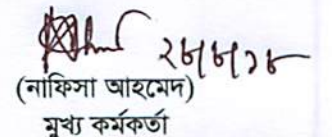 ২৮/৮/১৮
(নাফিসা আহমেদ)
মুখ্য কর্মকর্তা